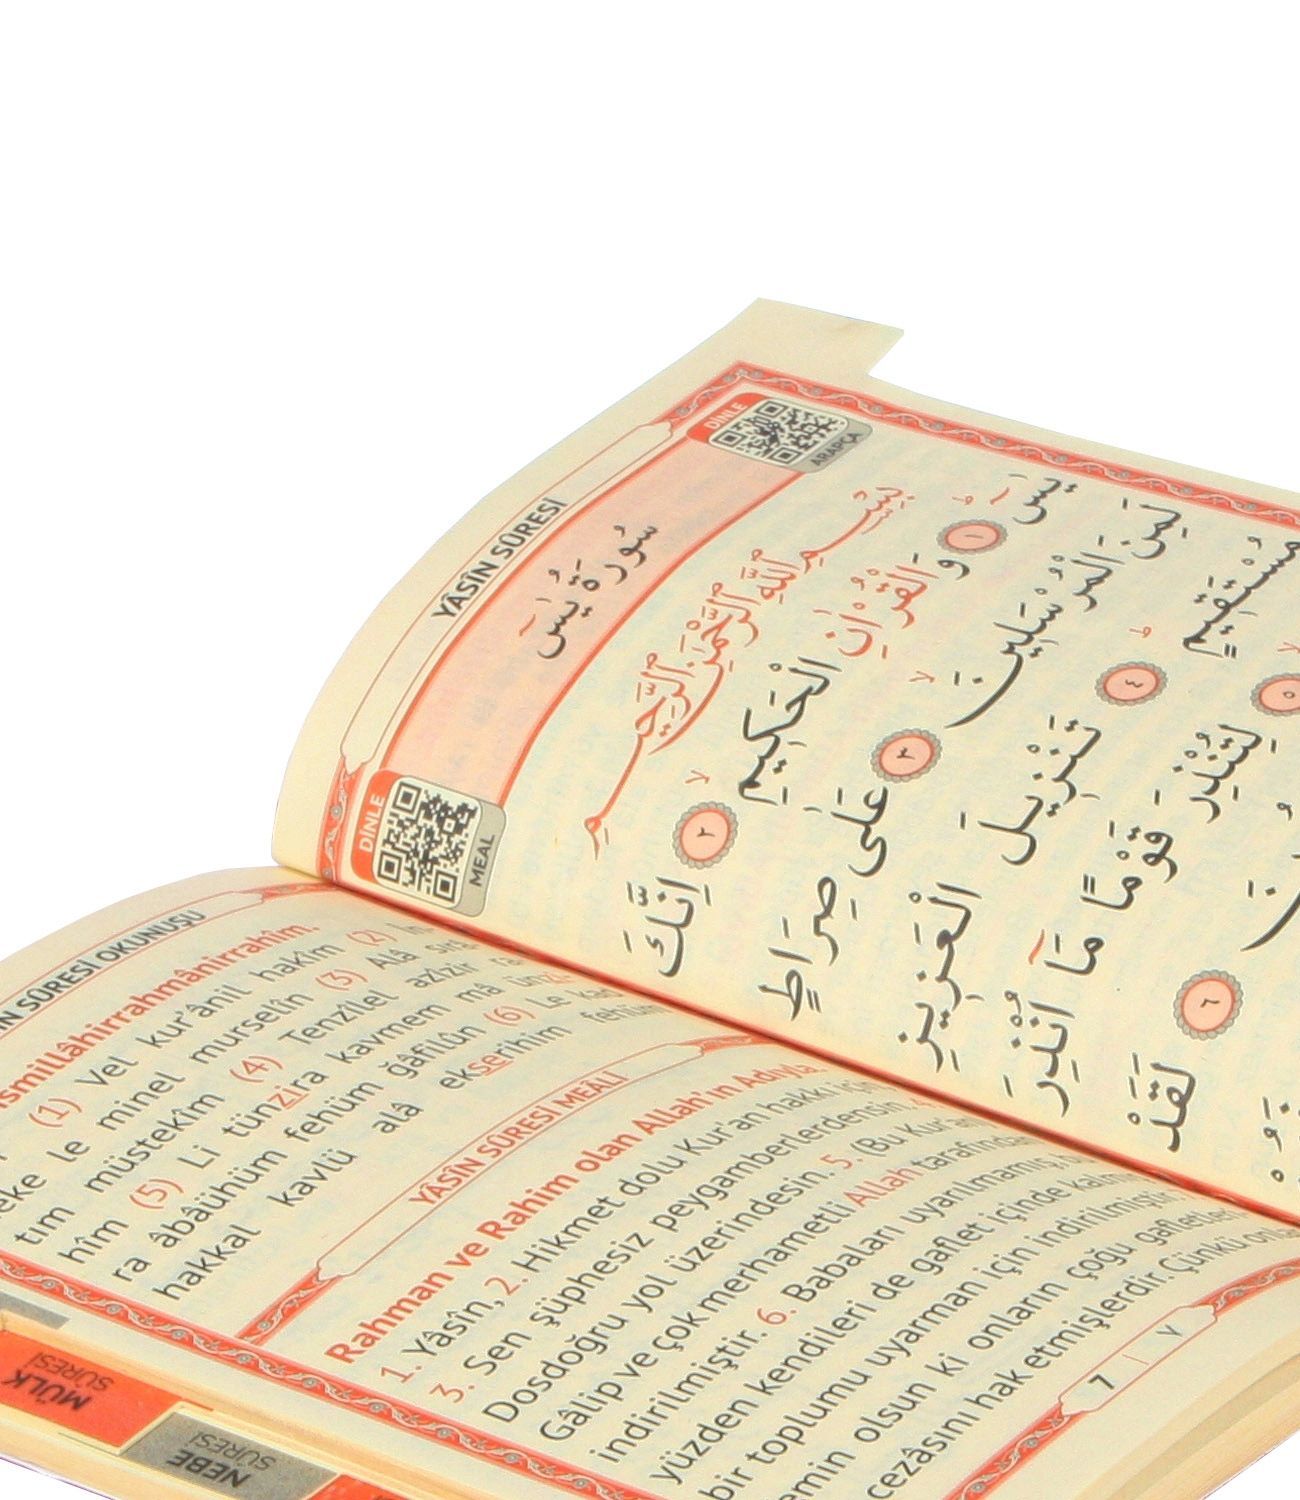 YÂSÎN SÛRESİ
DİNLE
ARAPÇA
سُورَةُ يٰسٓ
DİNLE
MEAL
بِسْمِ اللّٰهِ الرَّحْمٰنِ الرَّحِيمِ
يٰسٓ ١ وَالْقُرْاٰنِ الْحَكِيمِ ٢ اِنَّكَ
لَمِنَ الْمُرْسَلِينَ ٣ عَلٰى صِرَاطٍ
مُسْتَقِيمٍ ٤ تَنْزِيلَ الْعَزِيزِ
٥ لِتُنْذِرَ قَوْمًا مَٓا اُنْذِرَ
٦ لَقَدْ
SÛRESİ OKUNUŞU
(1) Vel kur'ânil hakîm (2) İn-
le minel murselîn (3) Alâ sırâ-
tım müstekîm (4) Tenzîlel azîzir
hîm (5) Li tünzira kavmem mâ
ra âbâühüm fehüm ğâfilûn (6) Le
hakkal kavlü alâ ekserihim fehüm
YÂSÎN SÛRESİ MEÂLİ
Rahman ve Rahim olan Allah'ın Adıyla.
1. Yâsîn, 2. Hikmet dolu Kur'an hakkı için
3. Sen şüphesiz peygamberlerdensin.
Dosdoğru yol üzerindesin. 5. (Bu Kur'an
Gâlip ve çok merhametli Allah tarafından
indirilmiştir. 6. Babaları uyarılmamış,
yüzden kendileri de gaflet içinde
bir toplumu uyarman için indirilmiştir.
emin olsun ki onların çoğu gafletleri
cezâsını hak etmişlerdir. Çünkü
7
٧
MÜLK
SÛRESİ
NEBE
SÛRESİ